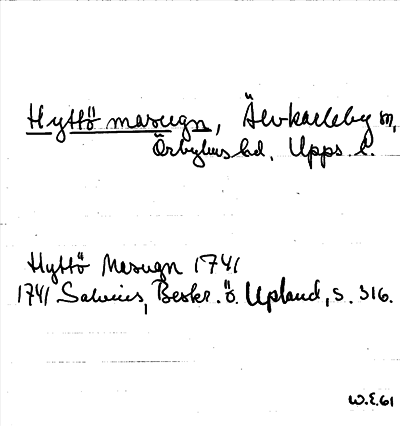 Hyttö masugn, Älvkarleby sn,
Örbyhus hd, Upps. l.
Hyttö Masugn 1741
1741 Salvius, Beskr. ö. Upland, s. 316.
W.E. 61